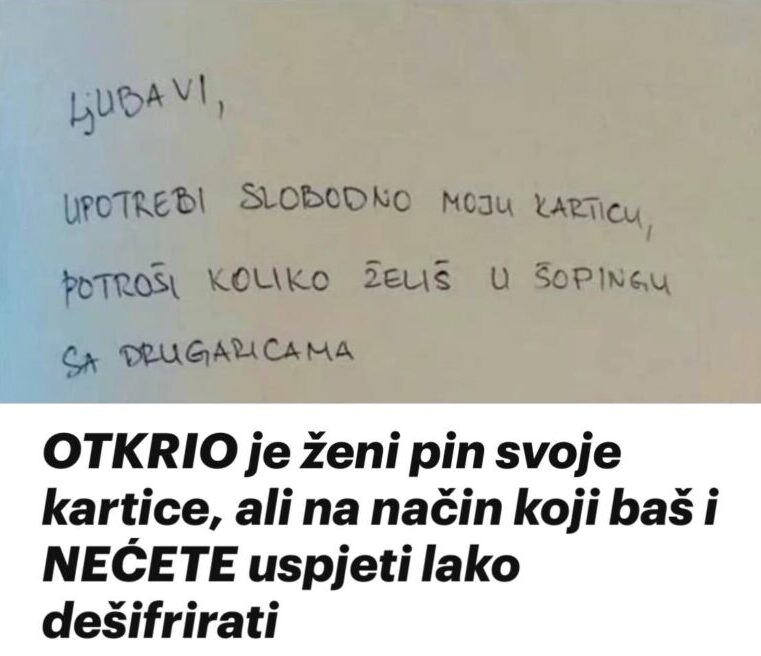 LjUBAVI,
UPOTREBI SLOBODNO MOJU KARTICU,
POTROŠI KOLIKO ŽELIŠ U ŠOPINGU
SA DRUGARICAMA
OTKRIO je ženi pin svoje
kartice, ali na način koji baš i
NEĆETE uspjeti lako
dešifrirati